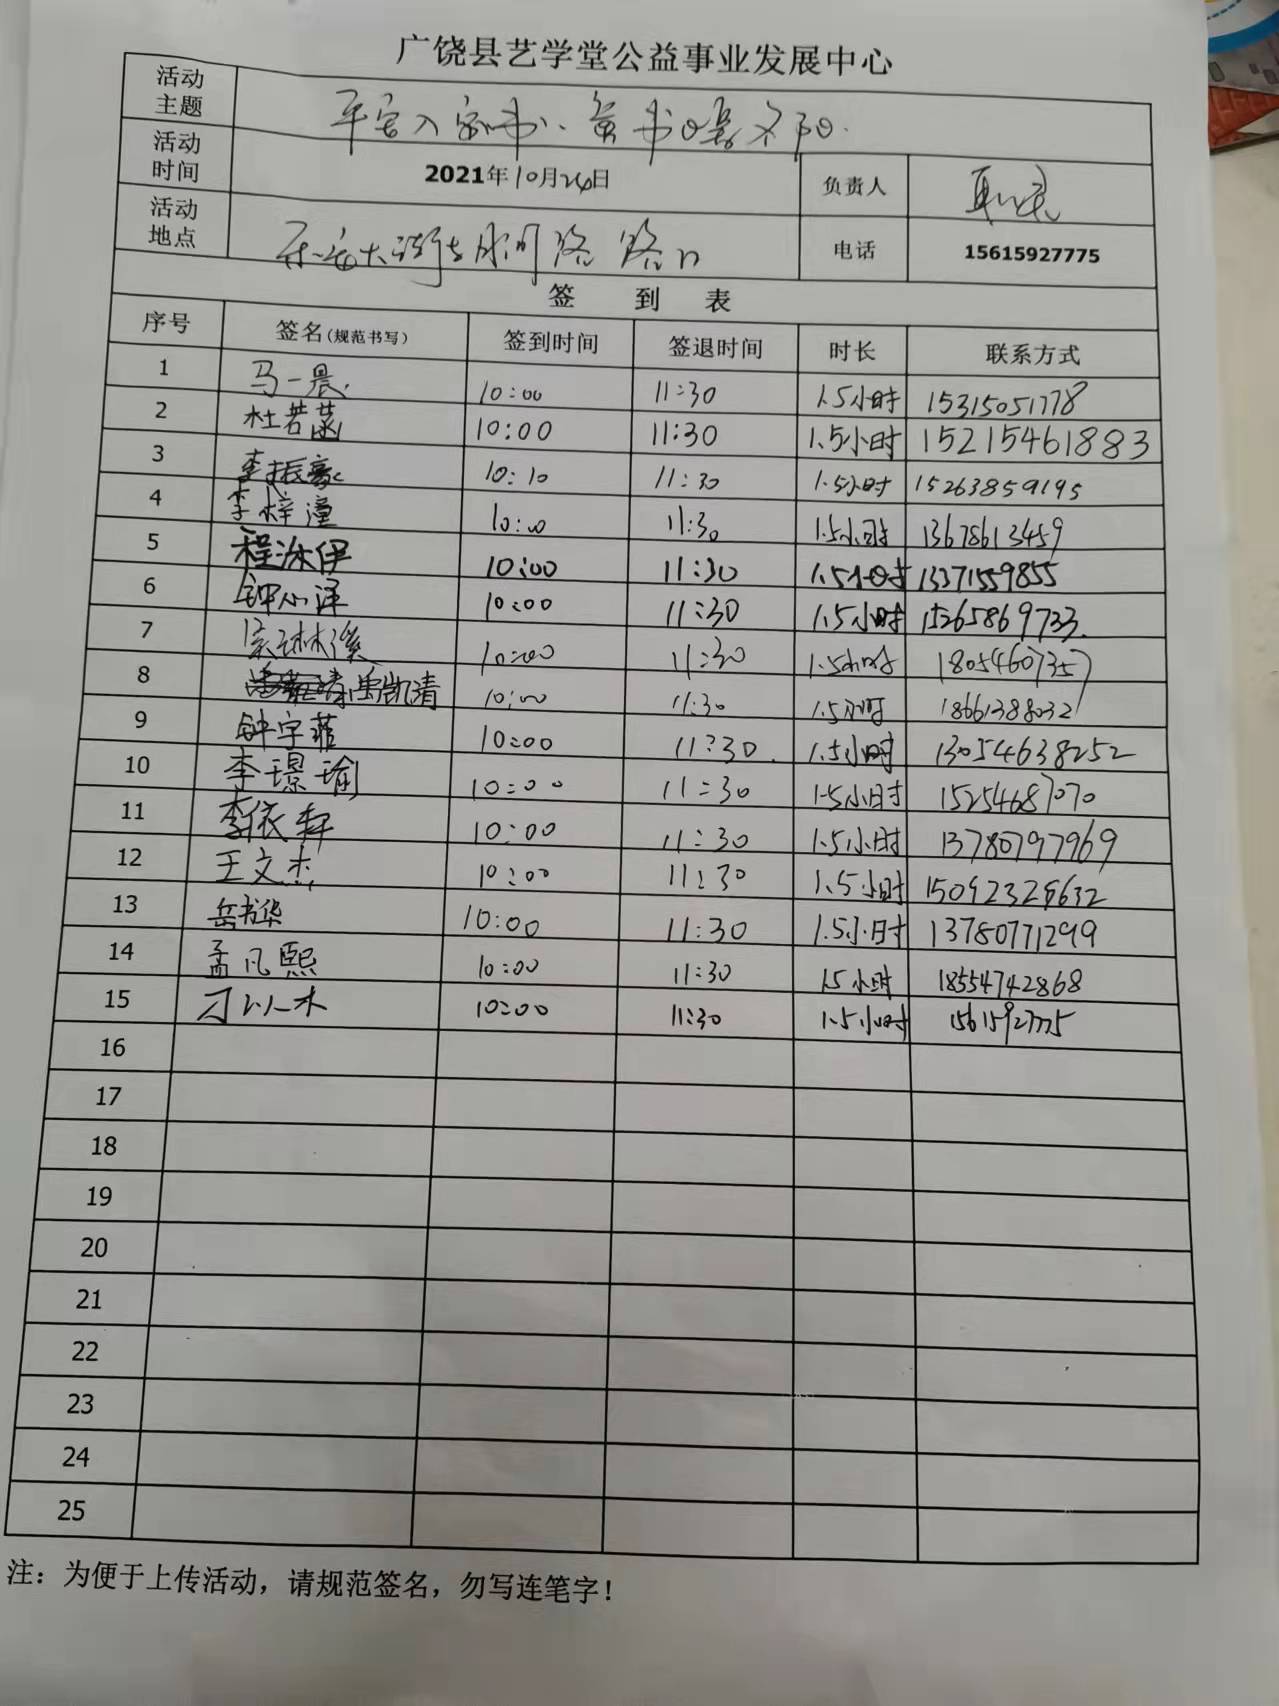 广饶县艺学堂公益事业发展中心
活动主题 平安入家书、
活动时间 2021年10月24日 负责人
活动地点 大街与 路 路口 电话 15615927775
签 到 表
序号 签名(规范书写) 签到时间 签退时间 时长 联系方式
1 马一晨 10:00 11:30 1.5小时 15315051778
2 杜若菡 10:00 11:30 1.5小时 15215461883
3 李振豪 10:10 11:30 1.5小时 15263859195
4 李梓潼 10:00 11:30 1.5小时 13678613459
5 程沐伊 10:00 11:30 1.5小时 13371559855
6 钟小泽 10:00 11:30 1.5小时 15265869733
7 10:00 11:30 1.5小时 18054607357
8 禹凯清 10:00 11:30 1.5小时 18661388032
9 钟宇菲 10:00 11:30 1.5小时 13054638252
10 李璟瑜 10:00 11:30 1.5小时 15254687070
11 李依轩 10:00 11:30 1.5小时 13780797969
12 王文杰 10:00 11:30 1.5小时 15092326632
13 岳书华 10:00 11:30 1.5小时 13780771299
14 孟凡熙 10:00 11:30 1.5小时 18554742868
15 刁以木 10:00 11:30 1.5小时 15615927775
16
17
18
19
20
21
22
23
24
25
注：为便于上传活动，请规范签名，勿写连笔字！